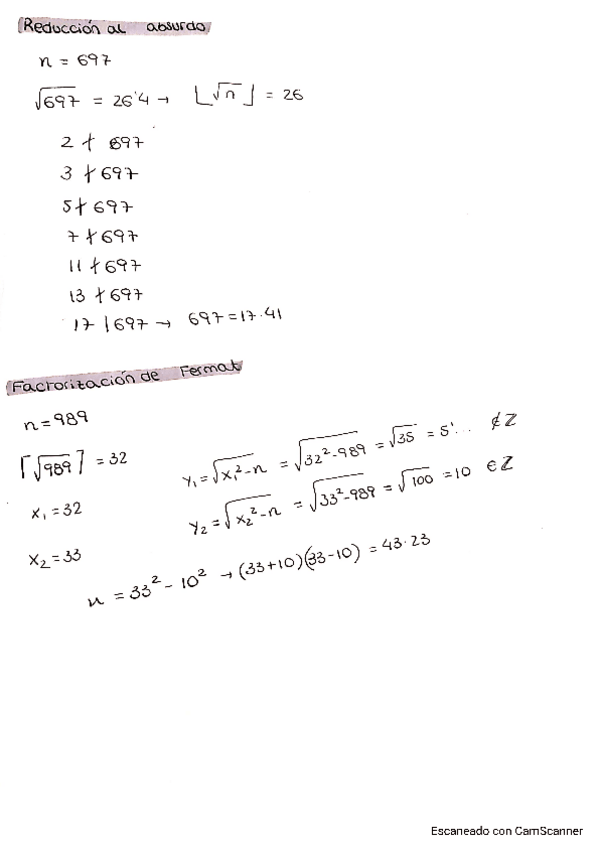 Reducción al absurdo
n = 697
√697 = 26'4 → ⌊√n⌋ = 26
2 ∤ 697
3 ∤ 697
5 ∤ 697
7 ∤ 697
11 ∤ 697
13 ∤ 697
17 | 697 → 697 = 17·41
Factorización de Fermat
n = 989
⌈√989⌉ = 32
x₁ = 32
y₁ = √x₁²-n = √32²-989 = √35 = 5'... ∉ ℤ
x₂ = 33
y₂ = √x₂²-n = √33²-989 = √100 = 10 ∈ ℤ
n = 33² - 10² → (33+10)(33-10) = 43·23
Escaneado con CamScanner